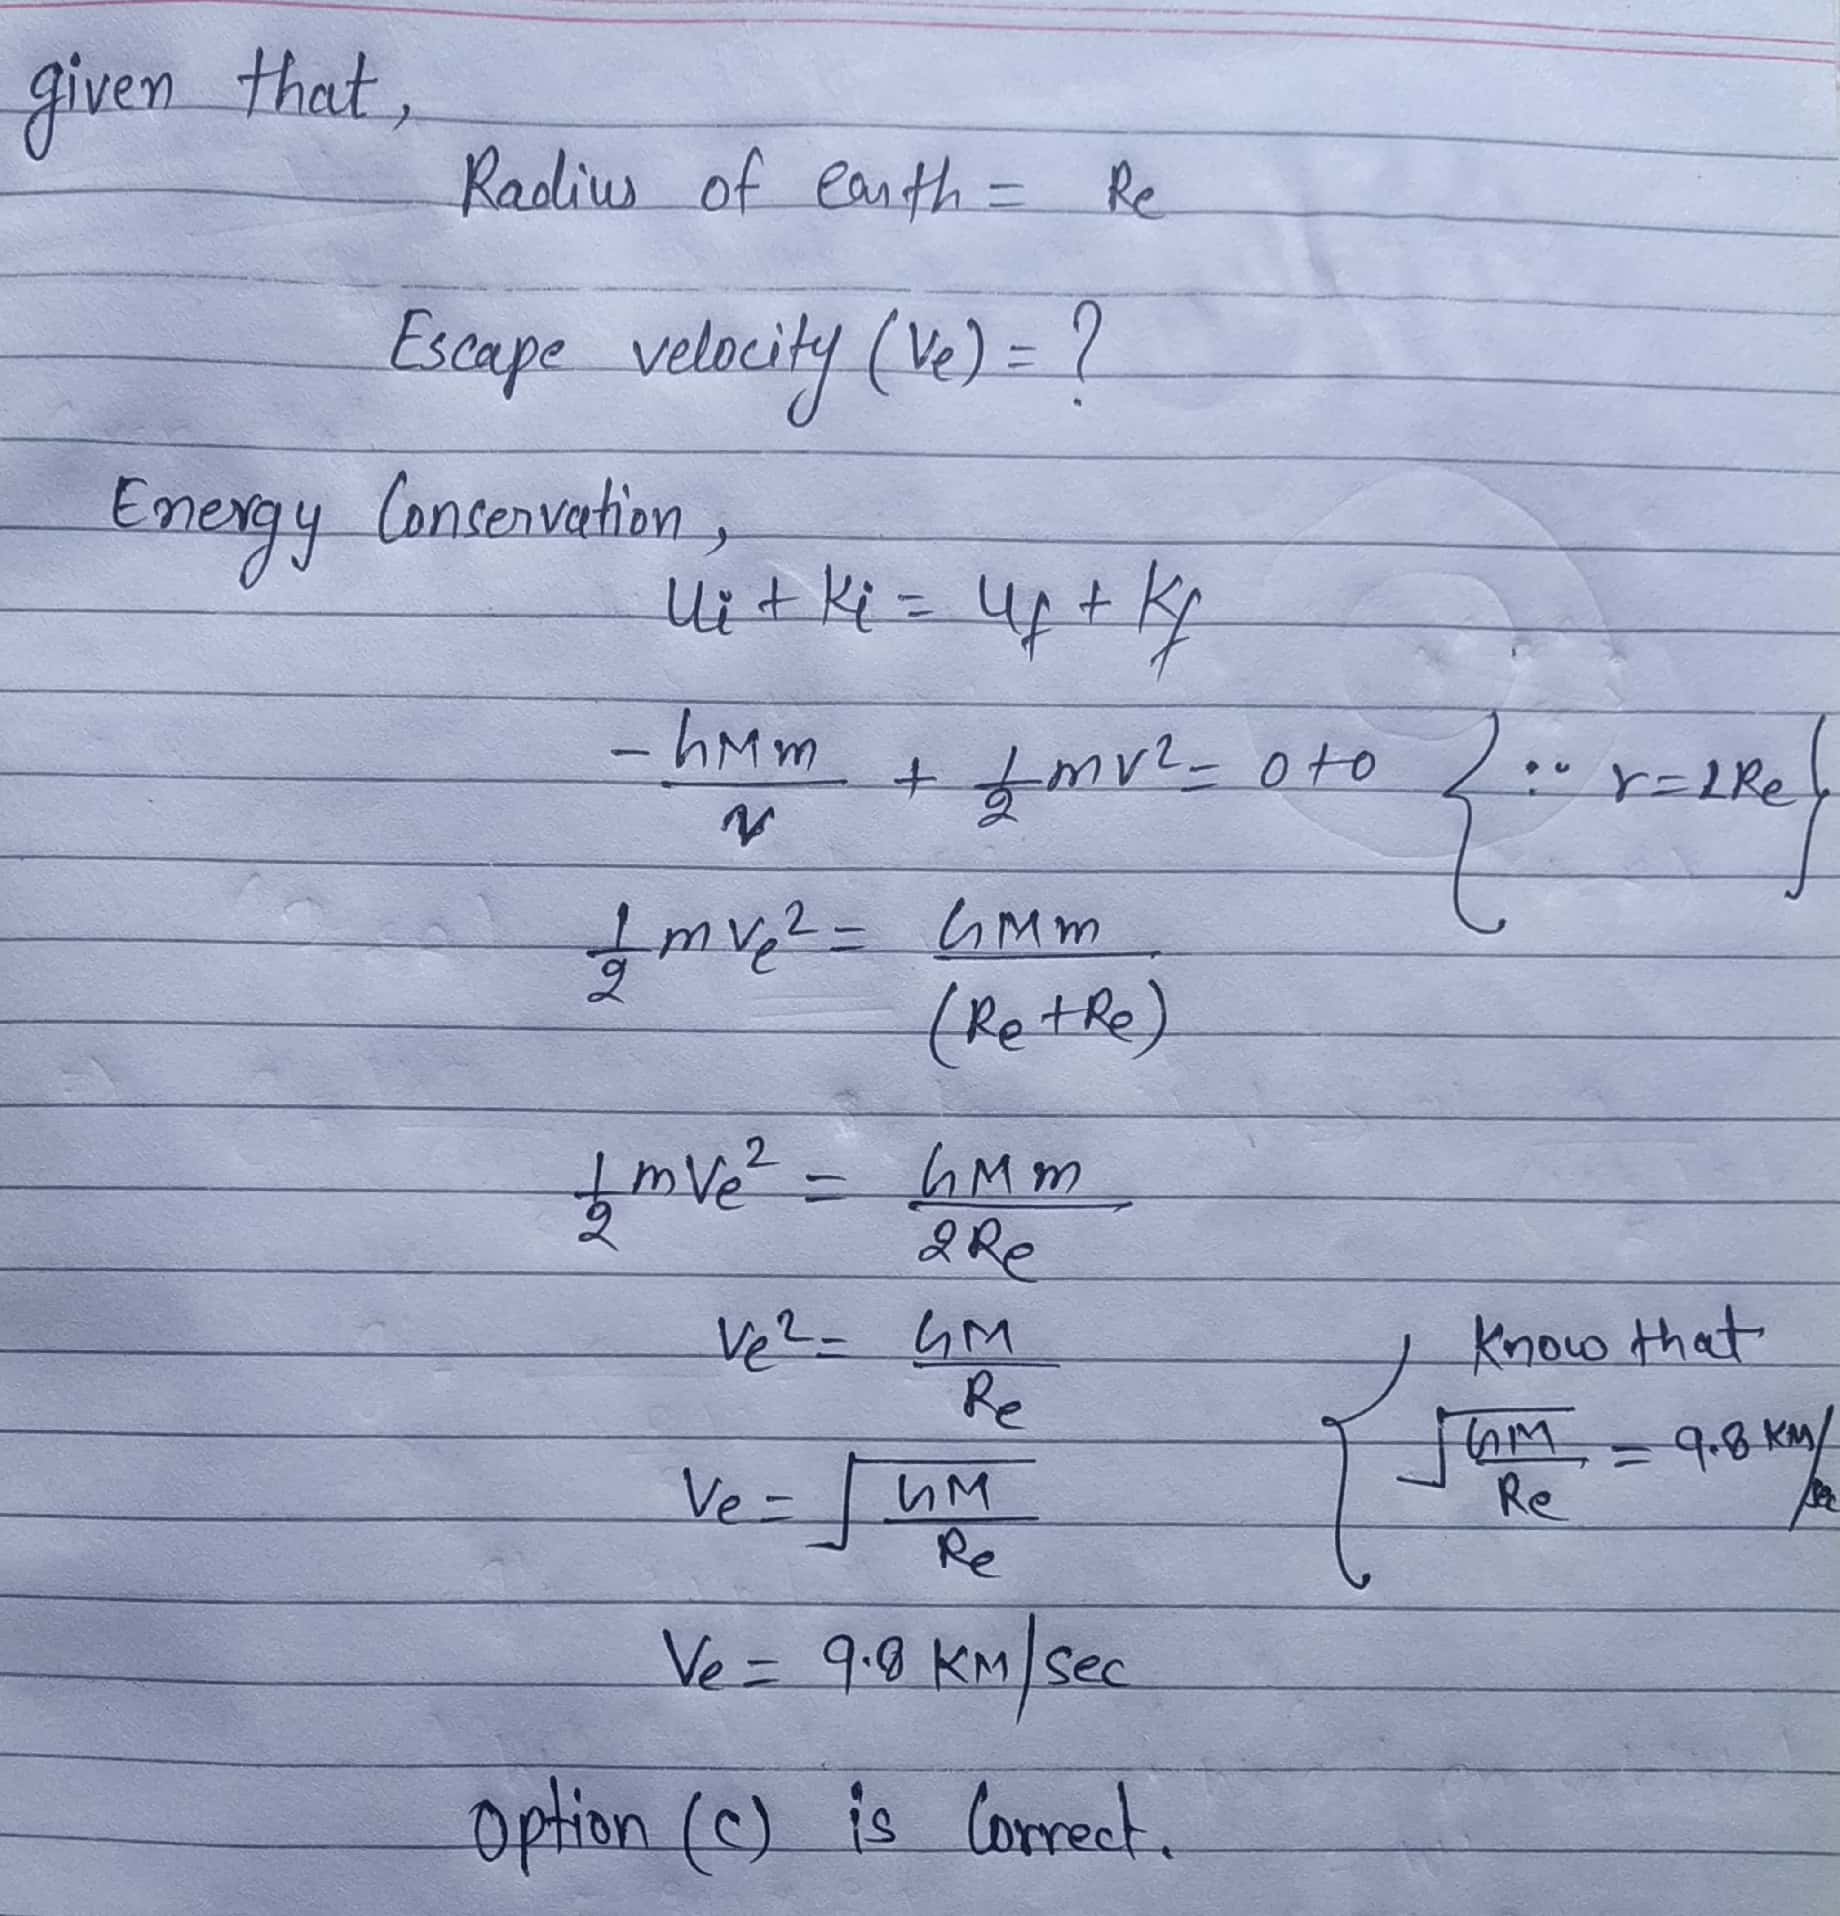 given that,
Radius of earth = Re
Escape velocity (Ve) = ?
Energy Conservation,
Ui + Ki = Uf + Kf
-GMm/r + 1/2 mv² = 0+0 {∵ r=2Re}
1/2 mve² = GMm/(Re+Re)
1/2 mVe² = GMm/2Re
Ve² = GM/Re
Know that
Ve = √GM/Re { √GM/Re = 9.8 KM/sec
Ve = 9.8 KM/sec
option (c) is Correct.